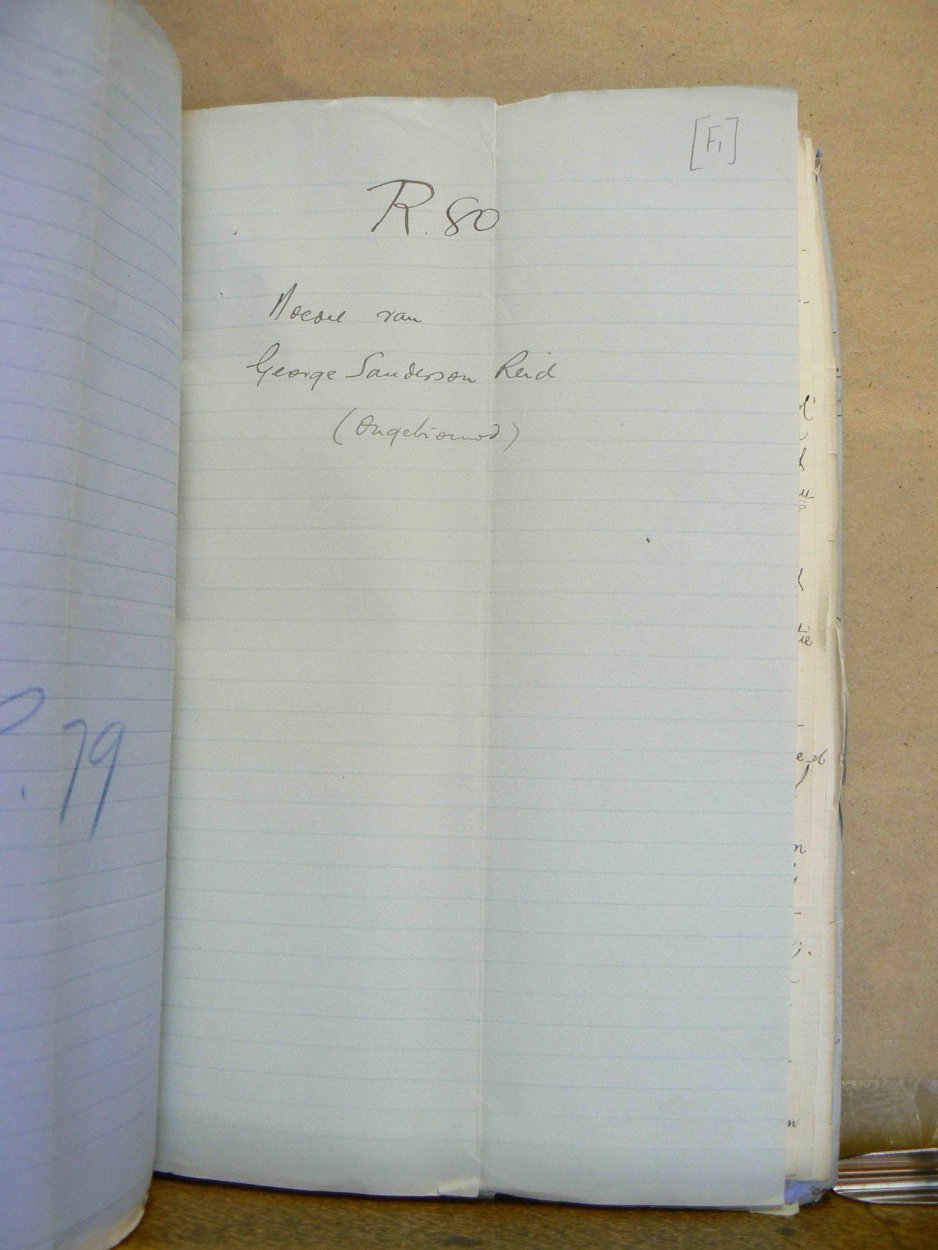 [F1]
R. 80
Boedel van
George Sanderson Reid
(Ongetrouwd)
79